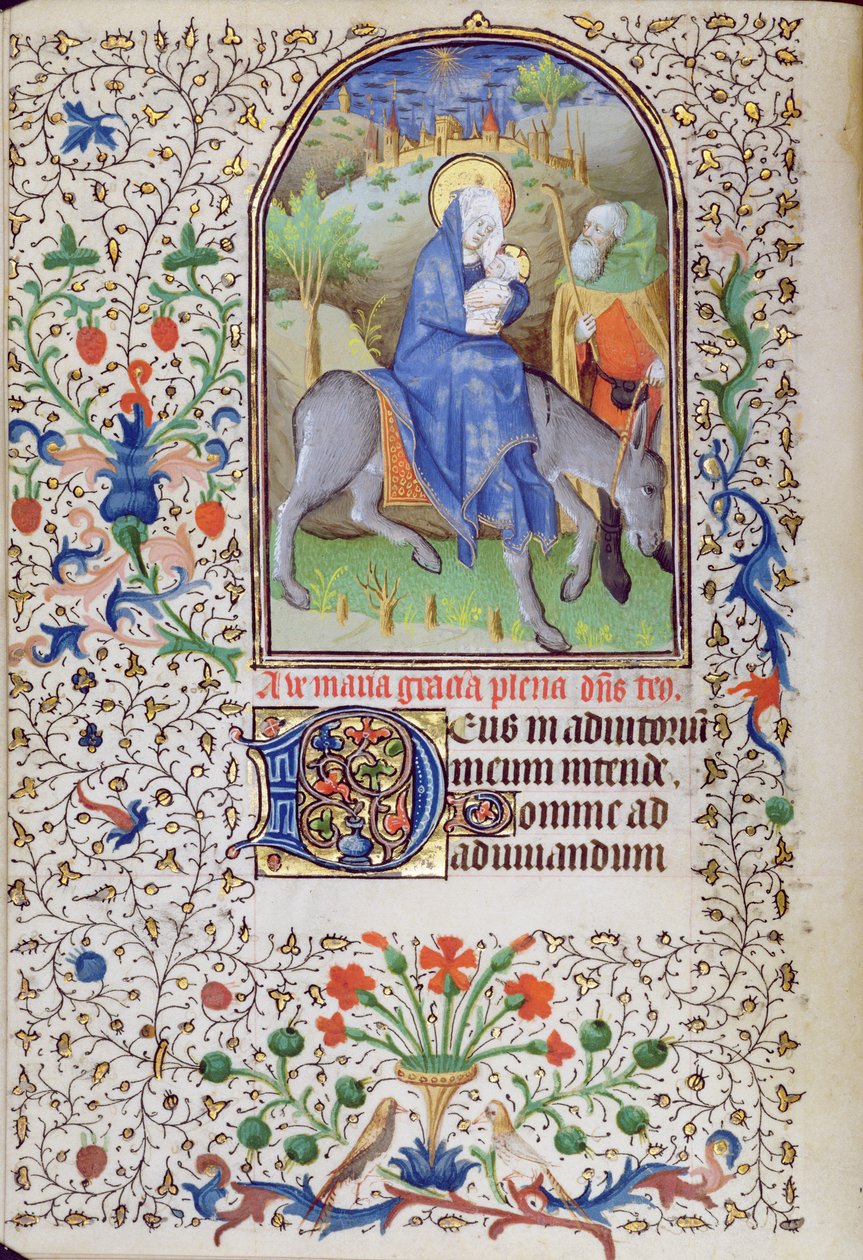 Ave maria gracia plena dn̄s tecū.
Deus in adiutoriū
meum intende,
Domine ad
adiuuandum